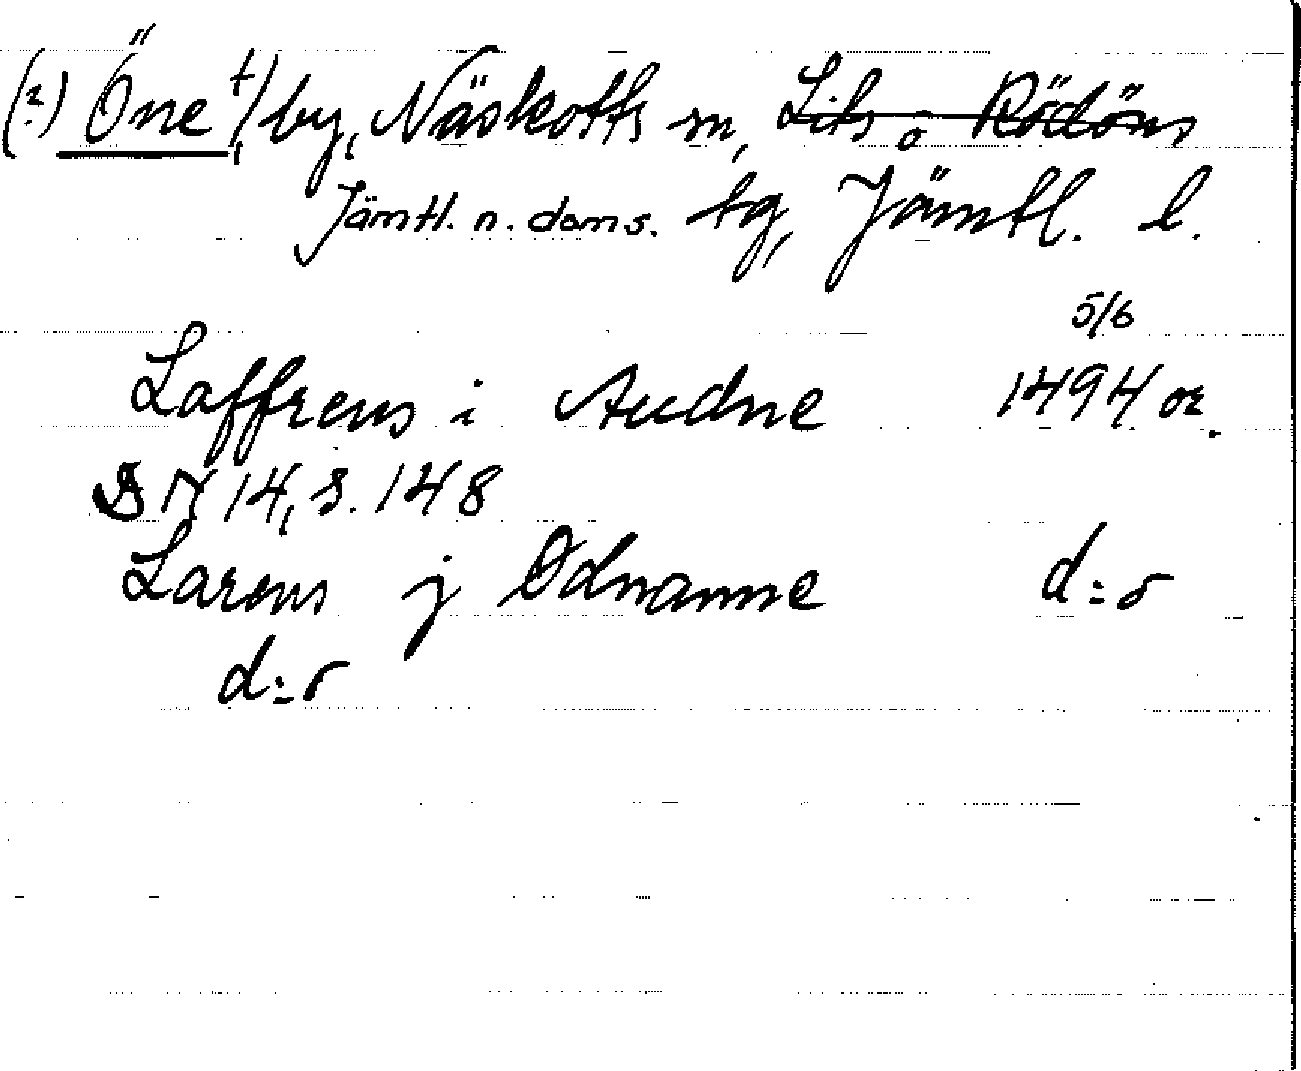 (2) Öne †) by, Näskotts sn, Lits o Rödöns
Jämtl. n. doms. tg, Jämtl. l.
5/6
Laffrens i Audne 1494 or.
DN 14, s. 148
Larens j Odnanne d:o
d:o